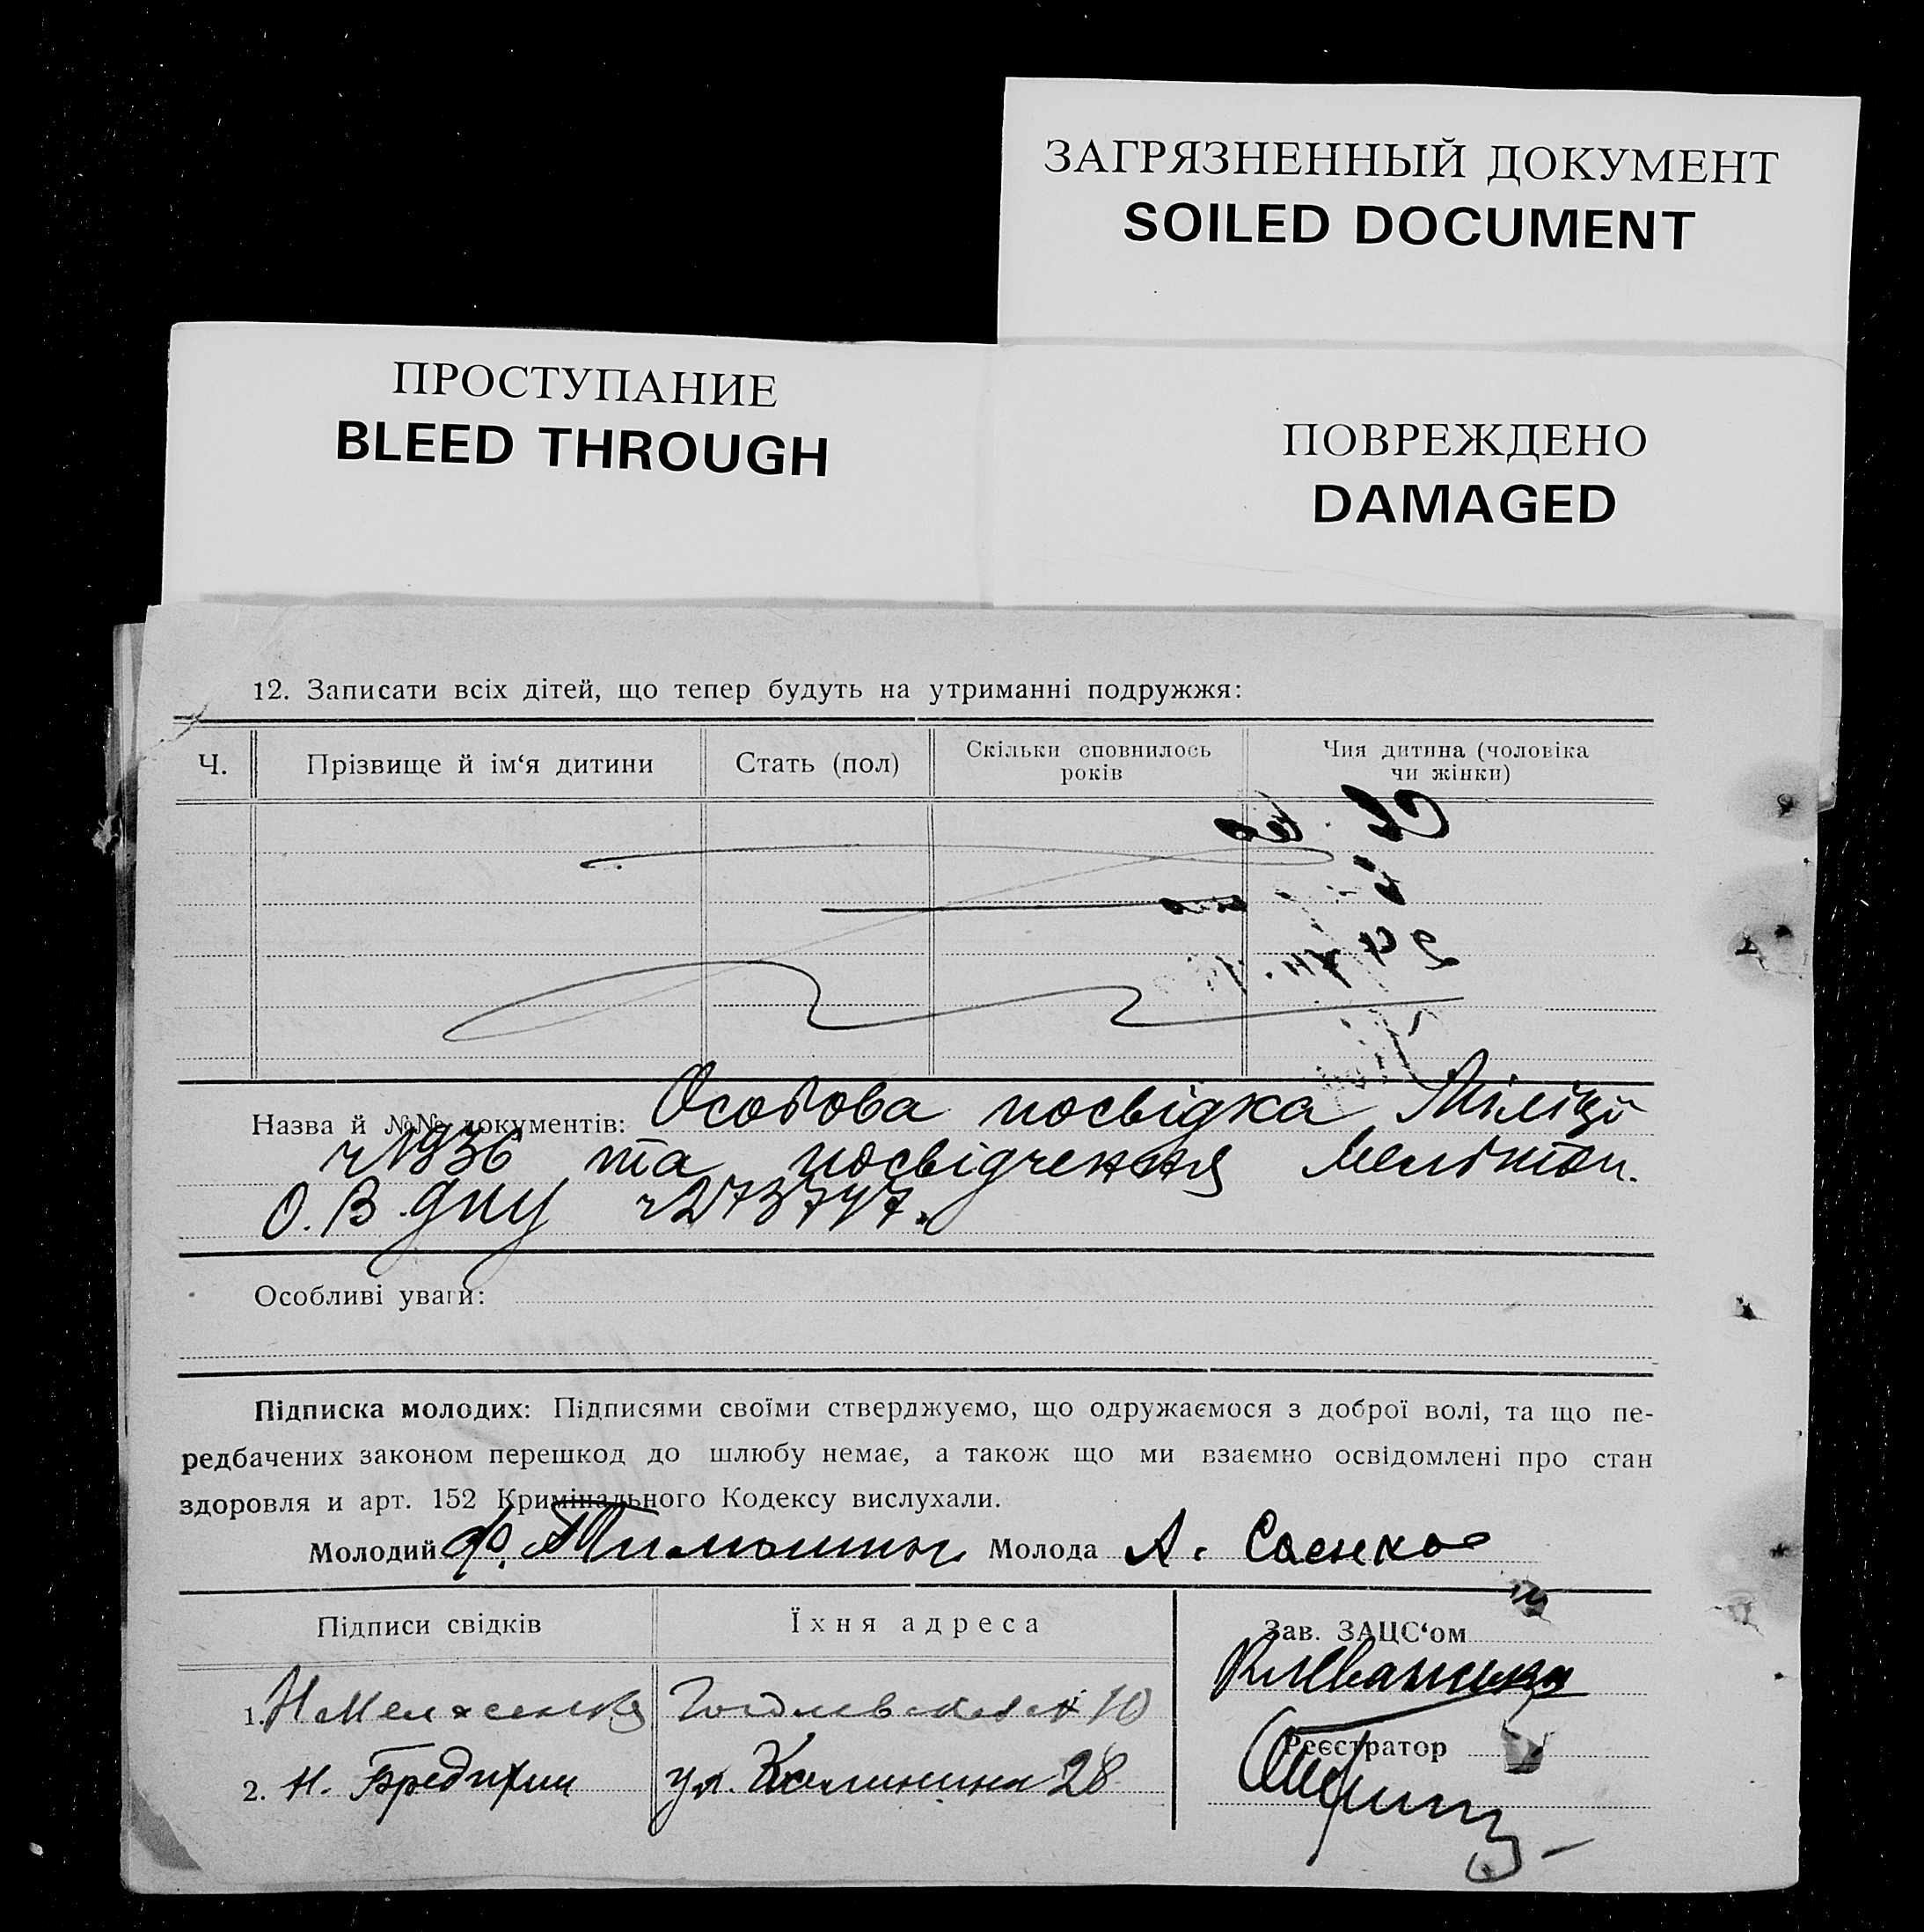 ЗАГРЯЗНЕННЫЙ ДОКУМЕНТ
SOILED DOCUMENT
ПРОСТУПАНИЕ
BLEED THROUGH
ПОВРЕЖДЕНО
DAMAGED
12. Записати всіх дітей, що тепер будуть на утриманні подружжя:
Ч. Прізвище й ім‘я дитини Стать (пол) Скільки сповнилось років Чия дитина (чоловіка чи жінки)
Назва й №№ документів: Особова посвідка Міліції
ч 1936 та посвідчення Мелітоп.
О. В. ДПУ ч 273747.
Особливі уваги:
Підписка молодих: Підписями своїми стверджуємо, що одружаємося з доброї волі, та що пе-
редбачених законом перешкод до шлюбу немає, а також що ми взаємно освідомлені про стан
здоровля и арт. 152 Кримінального Кодексу вислухали.
Молодий Ф. Молода А. Саенко
Підписи свідків Їхня адреса Зав. ЗАЦС‘ом
1. 10
Реєстратор
2. Н. ул. Калинина 28